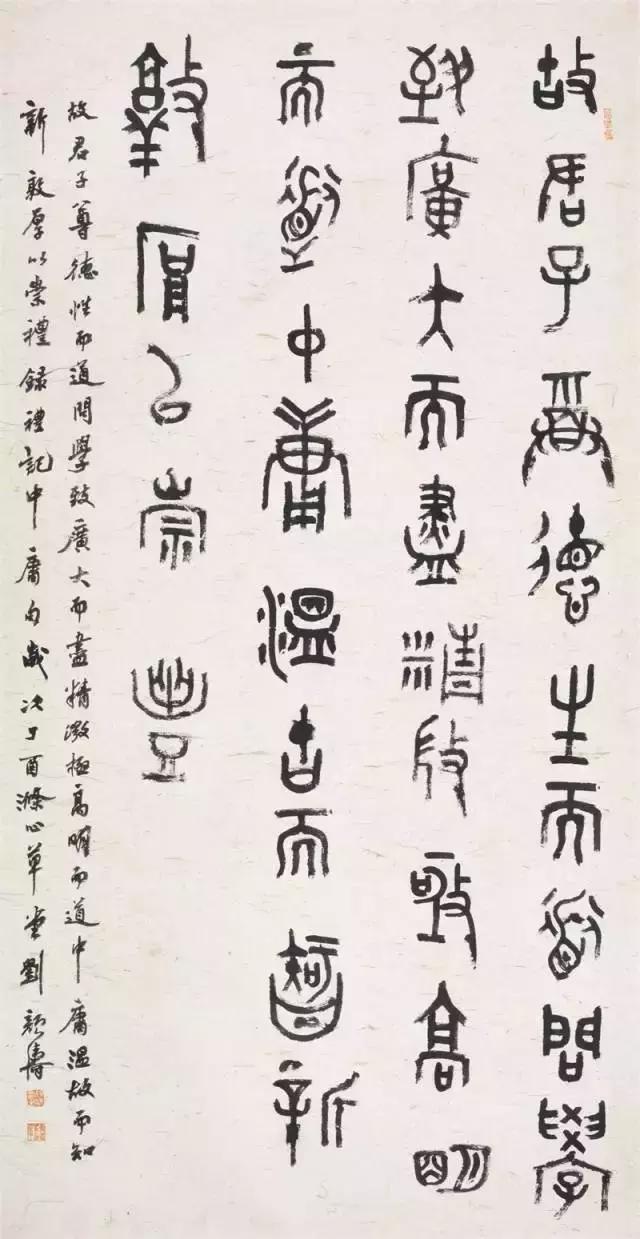 故君子尊德生而道問學
致廣大而盡精微極高明
而道中庸溫古而智新
敦厚以崇豊
故君子尊德性而道問學致廣大而盡精微極高明而道中庸溫故而知
新敦厚以崇禮錄禮記中庸句歲次丁酉滌心草堂劉顏濤